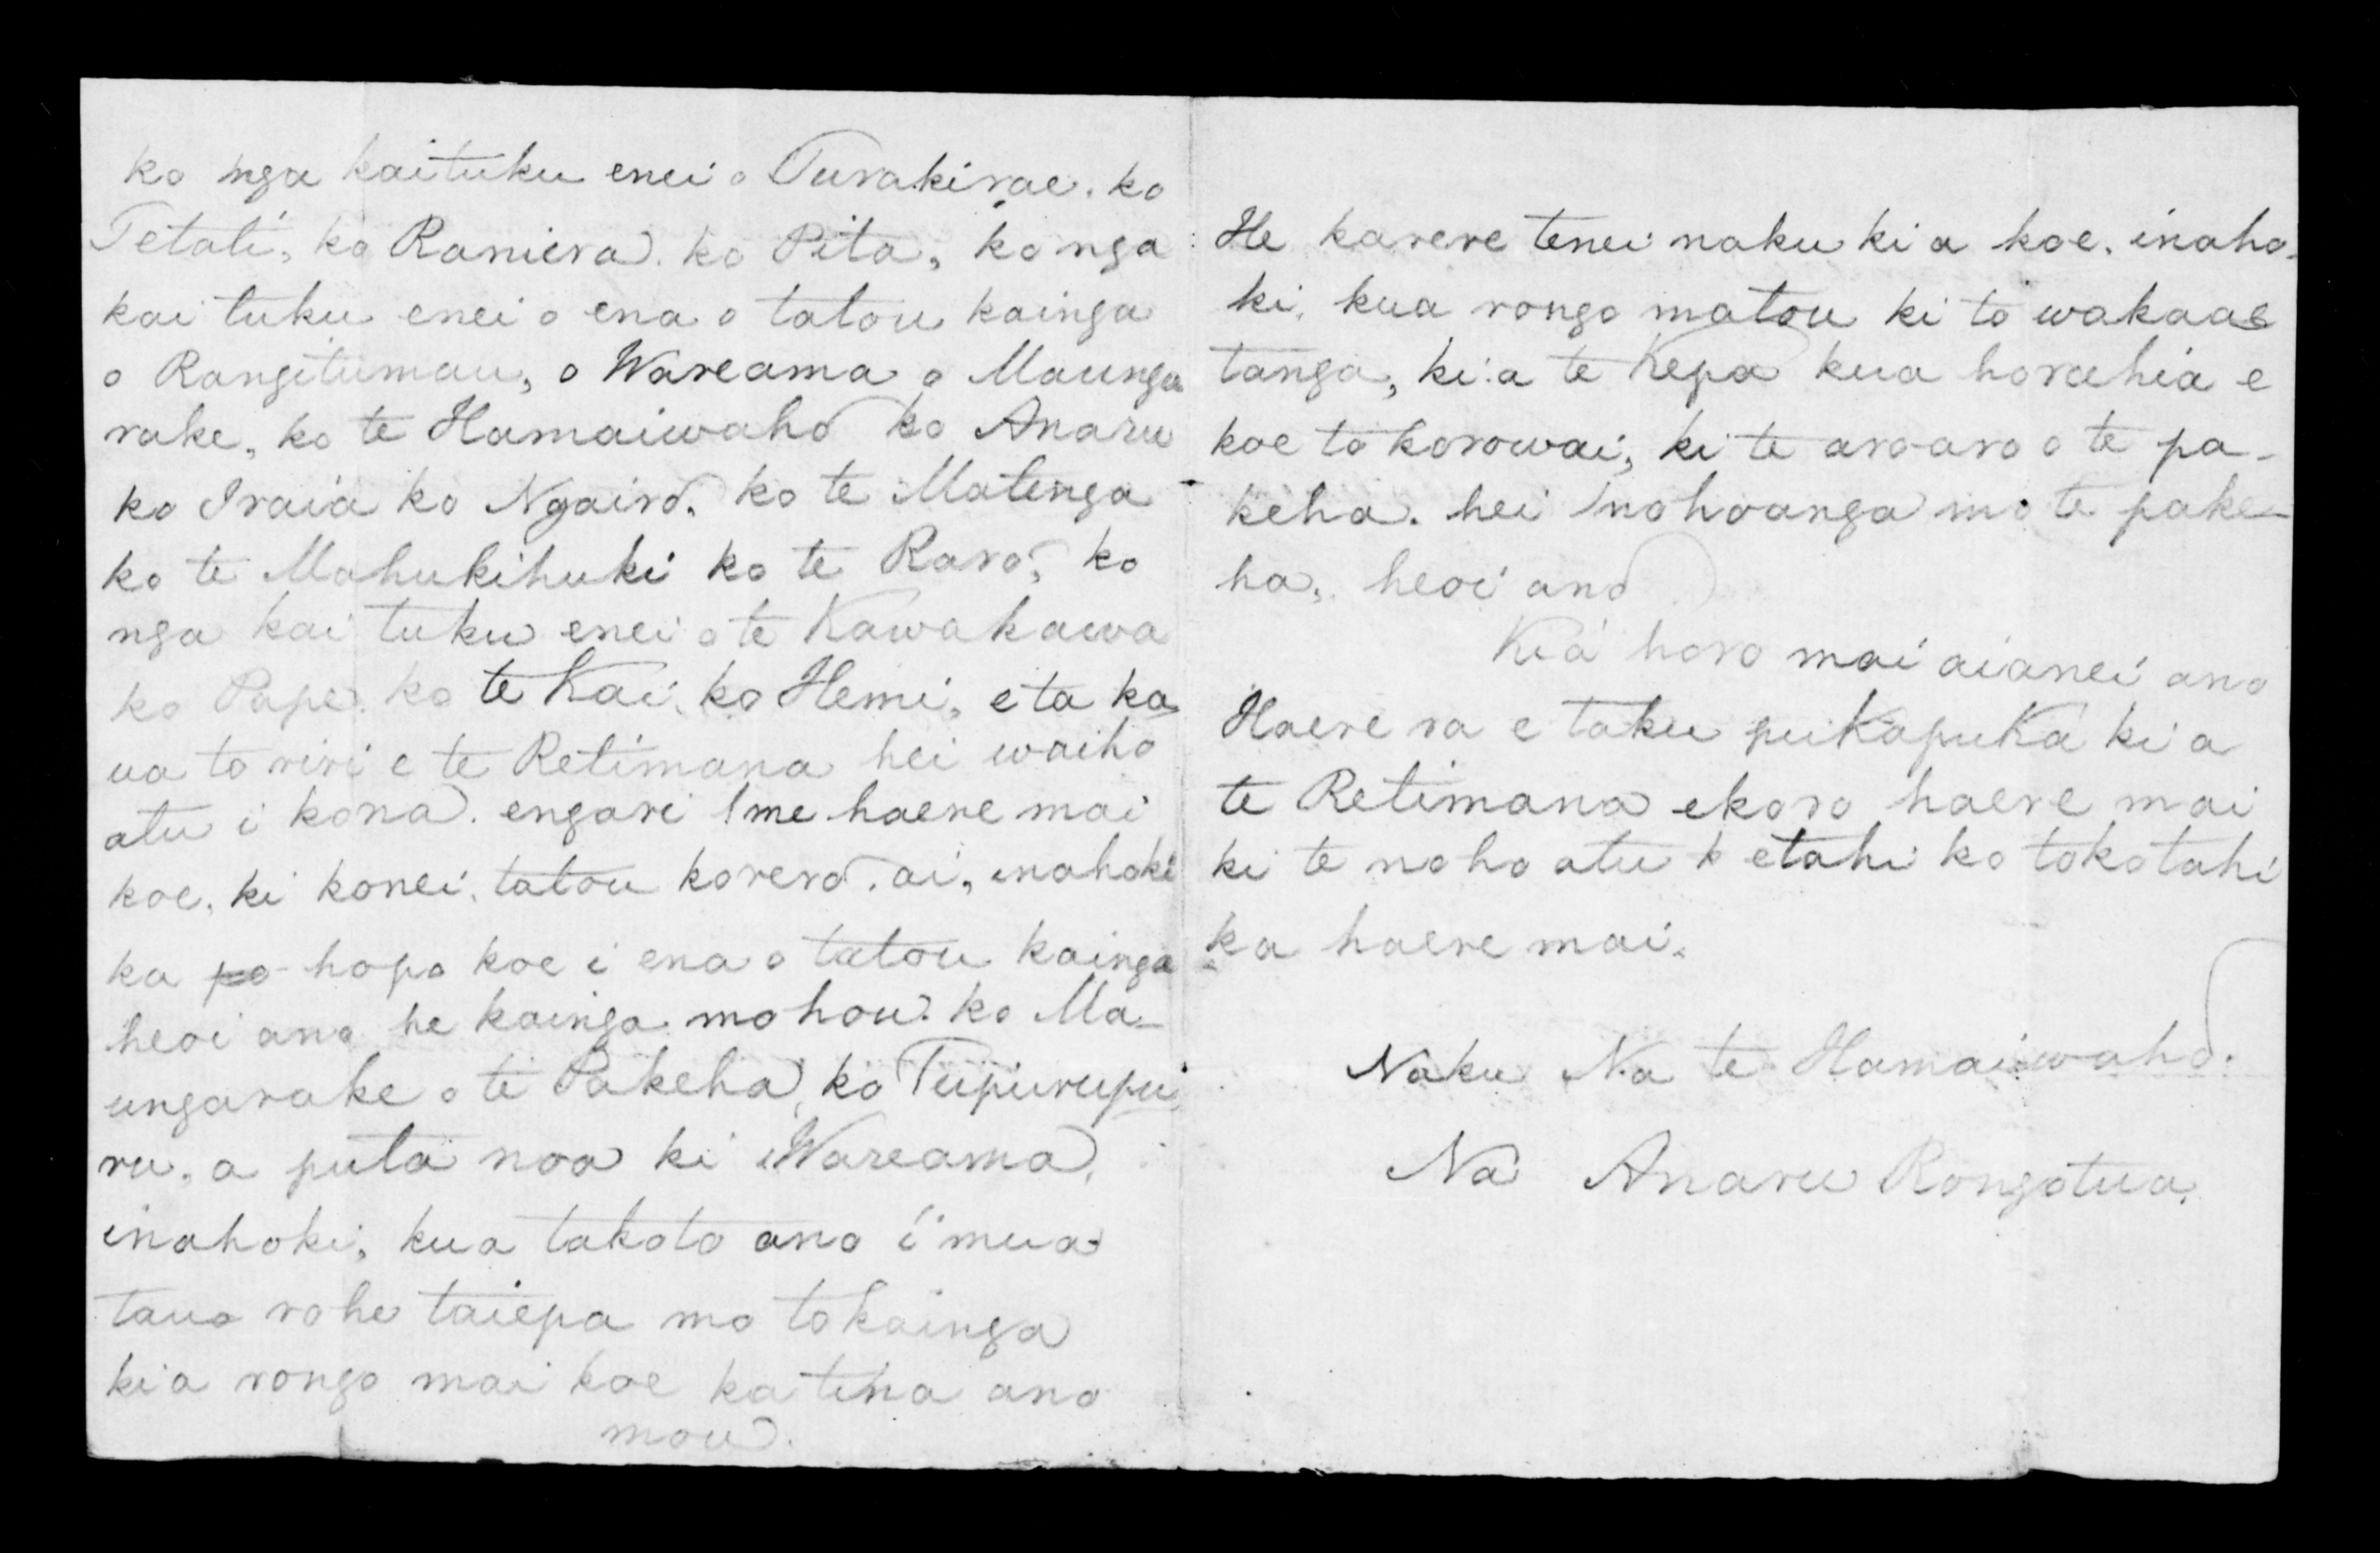 ko nga kaituku enei o Turakirae. ko
Tetati, ko Raniera. ko Pita, ko nga
kai tuku enei o ena o tatou kainga
o Rangitumau, o Wareama o Maunga
rake, ko te Hamaiwaho ko Anaru
ko Iraia ko Ngairo. ko te Matenga
ko te Mahukihuki ko te Raro, ko
nga kai tuku enei o te Kawakawa
ko Pape. ko te Kai. ko Hemi, eta ka
ua to riri e te Retimana hei waiho
atu i kona. engari me haere mai
koe. ki konei. tatou korero. ai, inahoki
ka po hopo koe i ena o tatou kainga
heoi ano he kainga mo hou. ko Ma-
ungarake o te Pakeha, ko Tupurupu
ru, a puta noa ki Wareama,
inahoki, kua takoto ano i mua
taua rohe taiepa mo to kainga
kia rongo mai koe ka tina ano
mou.
He karere tenei naku ki a koe. inaho-
ki, kua rongo matou ki to wakaae
tanga, ki a te Kepa kua horahia e
koe to korowai, ki te aroaro o te pa-
keha. hei nohoanga mo te pake-
ha, heoi ano
Kia horo mai aianei ano
Haere ra e taku pukapuka ki a
te Retimana ekoro haere mai
ki te noho atu k etahi ko tokotahi
ka haere mai.
Naku Na te Hamaiwaho.
Na Anaru Rongotua.